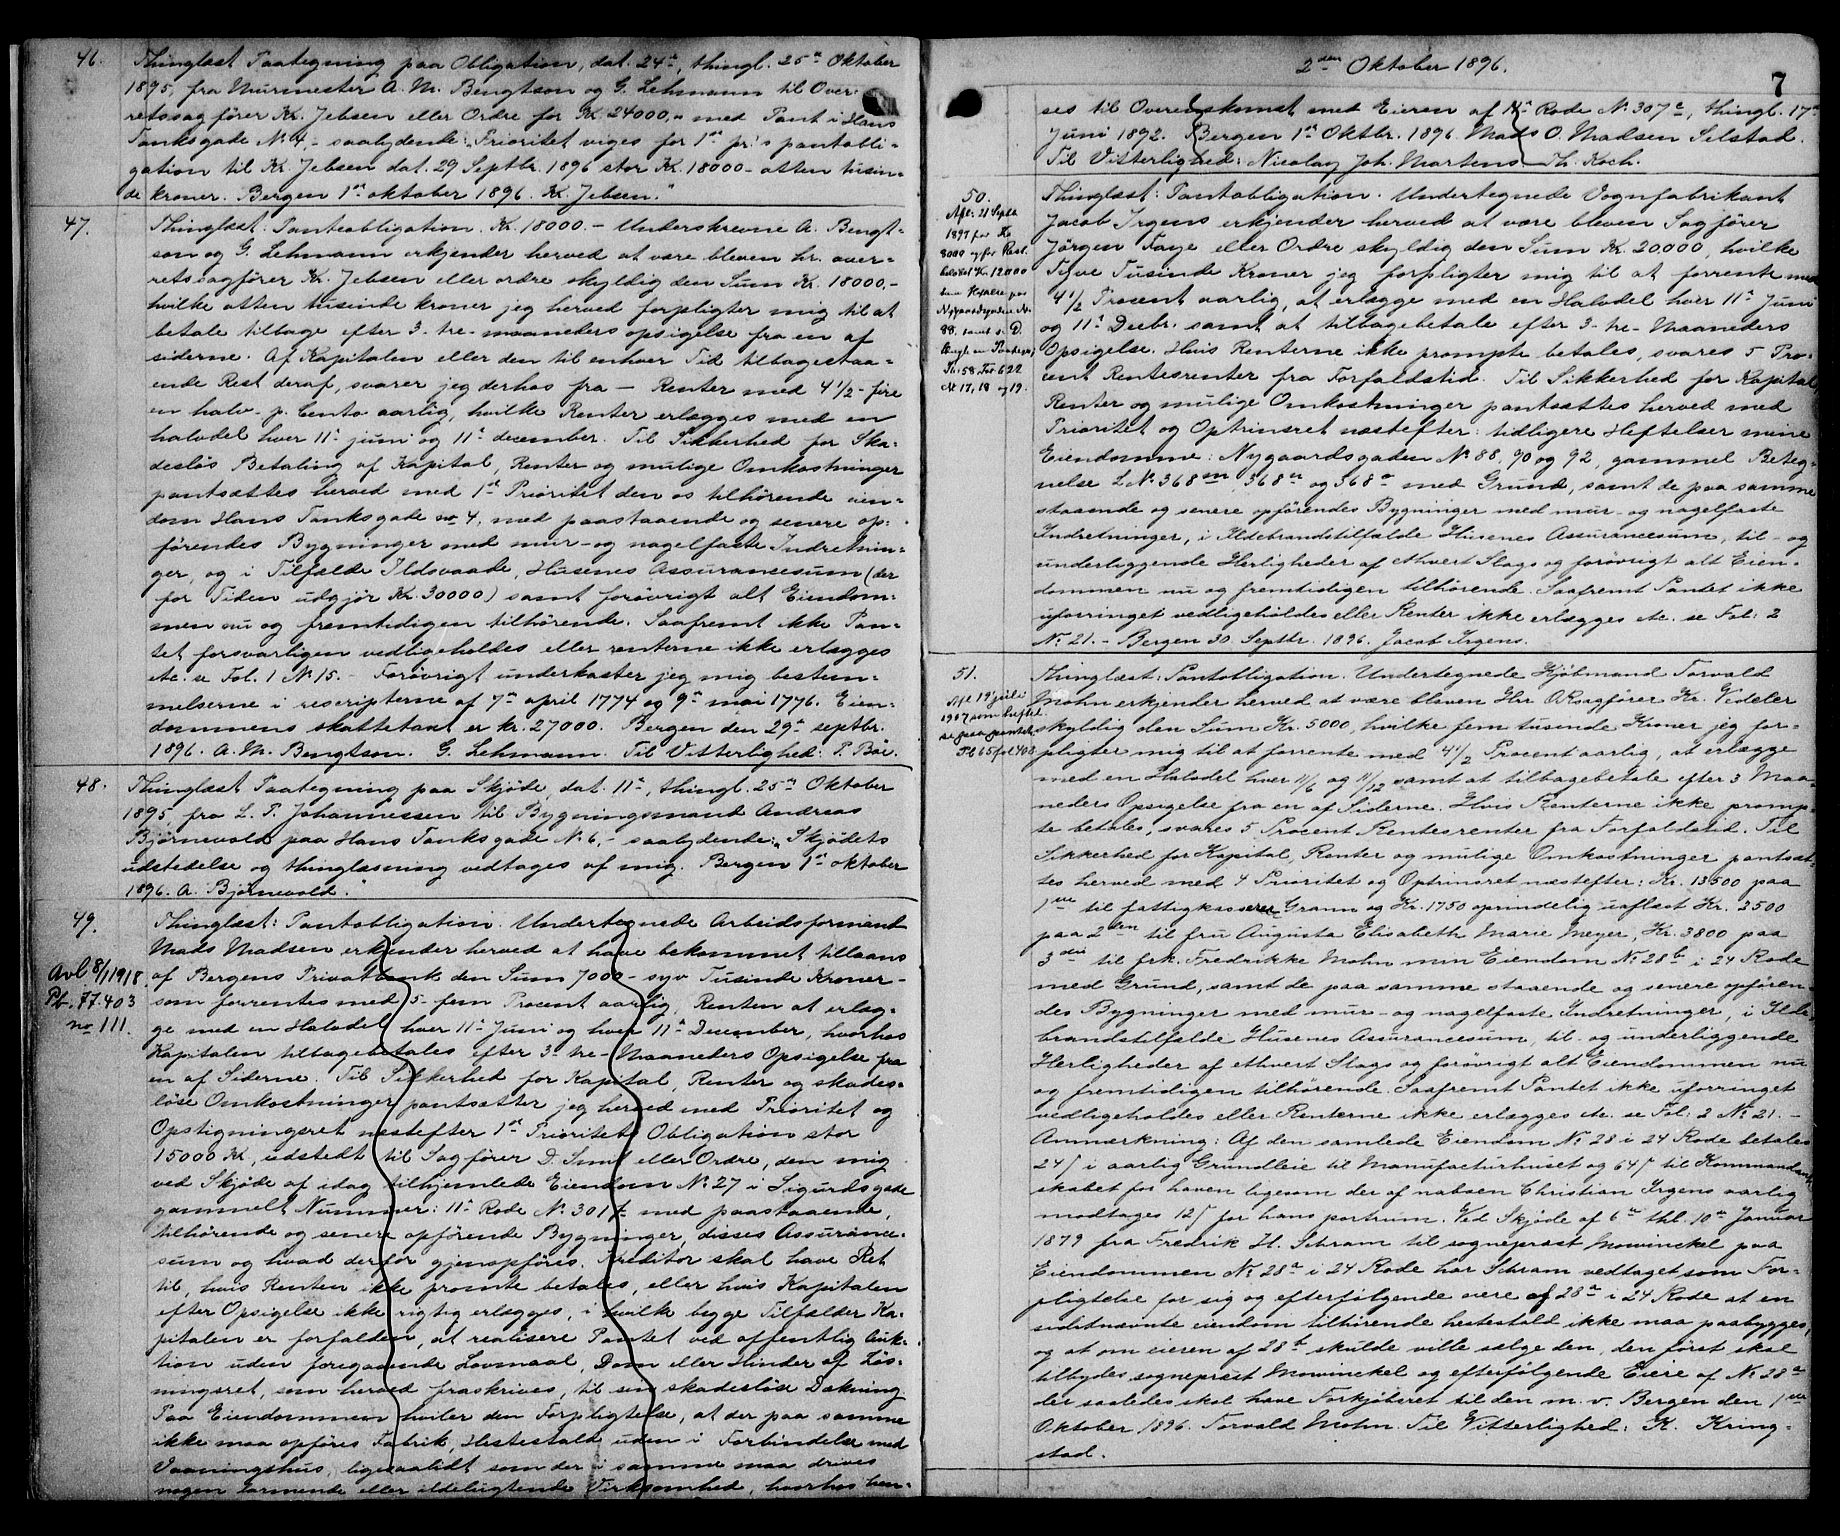 46. Thinglæst Paategning paa Obligation, dat. 24de, thingl. 25de Oktober
1895, fra Murmester A. M. Bengtson og G. Lehmann til Over-
retssagfører Kr. Jebsen eller Ordre for Kr. 24000,- med Pant i Hans
Tanksgade No 4, - saalydende: "Prioritet viges for 1ste pr:s pantobli-
gation til Kr. Jebsen dat. 29 Septbr. 1896 stor Kr. 18000 - atten tusin-
de kroner. Bergen 1ste oktober 1896. Kr. Jebsen."
47. Thinglæst: Panteobligation. Kr. 18000. - Underskrevne A. Bengt-
son og G. Lehmann erkjender herved at være bleven hr. over-
retssagfører Kr. Jebsen eller ordre skyldig den Sum Kr. 18000,-
hvilke atten tusinde kroner jeg herved forpligter mig til at
betale tilbage efter 3- tre- maaneders opsigelse fra en af
siderne. Af Kapitalen eller den til enhver Tid tilbagestaa-
ende Rest deraf, svarer jeg derhos fra - Renter med 4 1/2 - fire
en halv - p. Cento aarlig, hvilke Renter erlægges med en
halvdel hver 11te juni og 11te december. Til Sikkerhed for Ska-
desløs Betaling af Kapital, Renter og mulige Omkostninger
pantsættes herved med 1ste Prioritet den os tilhørende eien-
dom Hans Tanksgade no 4, med paastaaende og senere op-
førendes Bygninger med mur- og nagelfaste Indretnin-
ger, og i Tilfælde Ildsvaade, Husenes Assurancesum (der
for Tiden udgjør Kr. 30000) samt forøvrigt alt Eiendom-
men nu og fremtidigen tilhørende. Saafremt ikke Pan-
tet forsvarligen vedligeholdes eller renterne ikke erlægges
etc. se Fol. 1 No 15. - Forøvrigt underkaster jeg mig bestem-
melserne i rescripterne af 7de april 1774 og 9de mai 1776. Eien-
dommens skattetaxt er kr. 27000. Bergen den 29de septbr.
1896. A. M. Bengtson. G. Lehmann. Til Vitterlighed: P. Bøe.
48. Thinglæst Paategning paa Skjøde, dat. 11te, thingl. 25de Oktober
1895, fra L. P. Johannessen til Bygningsmand Andreas
Bjørnevold paa Hans Tanksgade No 6, - saalydende: "Skjødets
udstedelse og thinglæsning vedtages af mig. Bergen 1ste oktober
1896. A. Bjørnevold."
49. Thinglæst: Pantobligation. Undertegnede Arbeidsformand
Mads Madsen erkjender herved at have bekommet tillaans
af Bergens Privatbank den Sum 7000 - syv Tusinde Kroner -
som forrentes med 5 - fem Procent aarlig, Renten at erlæg-
ge med en Halvdel hver 11te Juni og hver 11te December, hvorhos
Kapitalen tilbagebetales efter 3- tre- Maaneders Opsigelse fra
en af Siderne. Til Sikkerhed for Kapital, Renter og skades-
løse Omkostninger pantsætter jeg herved med Prioritet og
Opstigningsret næstefter 1ste Prioritets Obligation stor
15000 Kr, udstedt til Sagfører D. Smit eller Ordre, den mig
ved Skjøde af idag tilhjemlede Eiendom No 27 i Sigurdsgade
gammelt Nummer: 11te Rode No 301f med paastaaende,
tilhørende og senere opførende Bygninger, disses Assurance-
sum og hvad derfor gjenopføres. Kreditor skal have Ret
til, hvis Renten ikke promte betales, eller hvis Kapitalen
efter Opsigelse ikke rigtig erlægges, i hvilke begge Tilfælder Ka-
pitalen er forfalden, at realisere Pantet ved offentlig Auk-
tion uden foregaaende Lovmaal, Dom eller Hinder af Løs-
ningsret, som herved fraskrives, til sin skadesløse Dækning
Paa Eiendommen hviler den Forpligtelse, at der paa samme
ikke maa opføres Fabrik, Hestestald uden i Forbindelse med
Vaaningshus, ligesaalidt som der i samme maa drives
nogen larmende eller ildelugtende Virksomhed, hvorhos hen-
Avl 8/1 1918.
Pb. 77. 403
no 111.
2den Oktober 1896.
7
ses til Overenskomst med Eieren af 11te Rode No 307a, thingl. 17de
Juni 1892. Bergen 1ste Oktbr. 1896. Mads O. Madsen Selstad.
Til Vitterlighed: Nicolay Joh. Martens - Th. Koch.
50. Thinglæst: Pantobligation. Undertegnede Vognfabrikant
Jacob Irgens erkjender herved at være bleven Sagfører
Jørgen Faye eller Ordre skyldig den Sum Kr. 20000, hvilke
Tyve Tusinde Kroner jeg forpligter mig til at forrente med
4 1/2 Procent aarlig, at erlægge med en Halvdel hver 11te Juni
og 11te Decbr. samt at tilbagebetale efter 3- tre- Maaneders
Opsigelse. Hvis Renterne ikke prompte betales, svares 5 Pro-
cent Rentesrenter fra Forfaldstid. Til Sikkerhed for Kapital
Renter og mulige Omkostninger pantsættes herved med
Prioritet og Optrinsret næstefter: tidligere Heftelser mine
Eiendomme: Nygaardsgaden No 88, 90 og 92, gammel Beteg-
nelse L No 368m, 368n og 368o med Grund, samt de paa samme
staaende og senere opførendes Bygninger med mur- og nagelfaste
Indretninger, i Ildebrandstilfælde Husenes Assurancesum, til- og
underliggende Herligheder af ethvert Slags og forøvrigt alt Eien-
dommen nu og fremtidigen tilhørende. Saafremt Pantet ikke
uforringet vedligeholdes eller Renter ikke erlægges etc. se Fol: 2
No 21. - Bergen 30. Septbr. 1896. Jacob Irgens.
Afl: 21 Septb
1897 for Kr
8000 og for Rest-
beløbet Kr. 12000
Nygaardsgaden No
88, samt s. D.
Pb. 58 Fol 622
No 17, 18 og 19.
51. Thinglæst: Pantobligation. Undertegnede Kjøbmand Torvald
Mohn erkjender herved at være bleven Hr. ORsagfører Kr. Vedeler
skyldig den Sum Kr. 5000, hvilke fem tusinde Kroner jeg for-
pligter mig til at forrente med 4 1/2 Procent aarlig, at erlægge
med en Halvdel hver 11/6 og 11/12 samt at tilbagebetale efter 3 Maa-
neders Opsigelse fra en af Siderne. Hvis Renterne ikke promp-
te betales, svares 5 Procent Rentesrenter fra Forfaldstid. Til
Sikkerhed for Kapital, Renter og mulige Omkostninger pantsæt-
tes herved med 4 Prioritet og Optrinsret næstefter: Kr. 13500 paa
1ste til fattigkasserer Grann og Kr. 1750 oprindelig uaflæst Kr. 3500
paa 2den til fru Augusta Elisabeth Marie Meyer, Kr. 3800 paa
3die til frk. Fredrikke Mohn min Eiendom No 28b i 24 Rode
med Grund, samt de paa samme staaende og senere opføren-
des Bygninger med mur- og nagelfaste Indretninger, i Ilde-
brandstilfælde Husenes Assurancesum, til- og underliggende
Herligheder af ethvert Slags og forøvrigt alt Eiendommen nu
og fremtidigen tilhørende. Saafremt Pantet ikke uforringet
vedligeholdes eller Renterne ikke erlægges etc. se Fol: 2 No 21. -
Anmærkning: Af den samlede Eiendom No 28 i 24 Rode betales
24ſ i aarlig Grundleie til Manufacturhuset og 64ſ til Kommandant-
skabet for haven ligesom der af naboen Christian Irgens aarlig
modtages 12ſ for hans portrum. Ved Skjøde af 6te thl. 10de Januar
1879 fra Fredrik H. Schram til sogneprest Mowinckel paa
Eiendommen No 28a i 24 Rode har Schram vedtaget som For-
pligtelse for sig og efterfølgende eiere af 28a i 24 Rode at en
sidstnævnte eiendom tilhørende hestestald ikke maa paabygges,
og at om eieren af 28b skulde ville sælge den, den først skal
tilbydes sogneprest Mowinckel og efterfølgende Eiere af No 28a
der saaledes skal have Forkjøbsret til den m. v. Bergen den 1ste
Oktober 1896. Torvald Mohn. Til Vitterlighed: K. Kring-
stad.
Afl 19 juli
1907 som heftel-
se paa pantet
Pb 65 fol 403